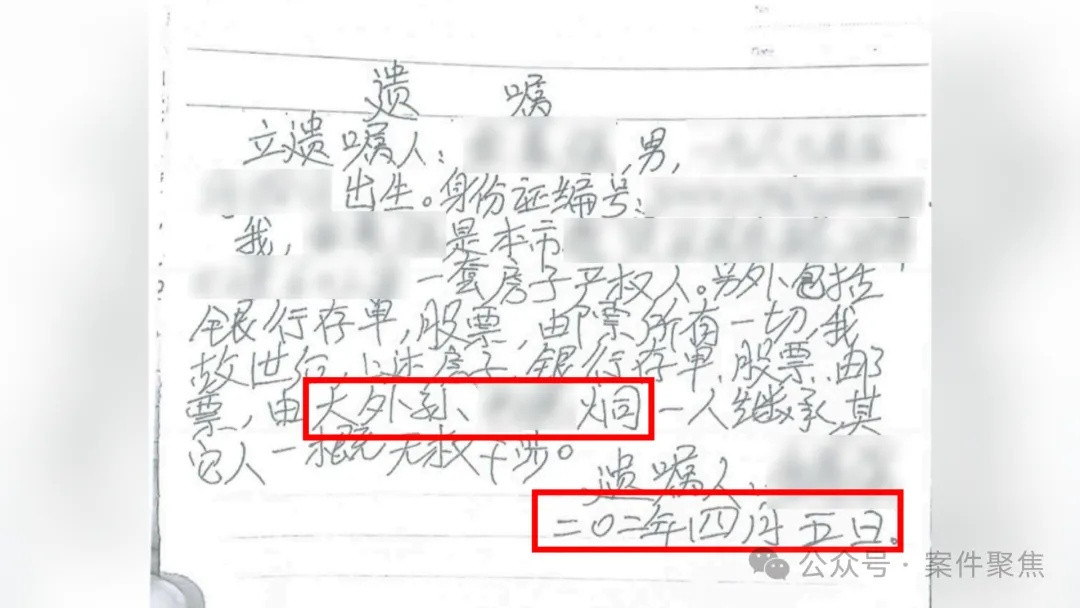 遗 嘱
立遗嘱人： ,男,
出生。身份证编号:
我, 是本市
一套房子产权人。另外包括
银行存单,股票,邮票所有一切,我
故世后,上述房子、银行存单、股票、邮
票,由大外孙、 烔 一人继承,其
它人一概无权干涉。
遗嘱人:
二〇二年四月五日。
公众号·案件聚焦